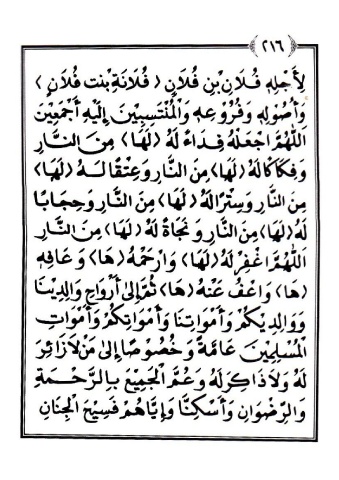 ﴿٢١٦﴾
لِأَجْلِهِ فُلَانِ بْنِ فُلَانٍ (فُلَانَةِ بِنْتِ فُلَانٍ)
وَأُصُولِهِ وَفُرُوعِهِ وَالْمُنْتَسِبِينَ إِلَيْهِ أَجْمَعِينَ
اَللّٰهُمَّ اجْعَلْهُ فِدَاءً لَهُ (لَهَا) مِنَ النَّارِ
وَفِكَاكًا لَهُ (لَهَا) مِنَ النَّارِ وَعِتْقًا لَهُ (لَهَا)
مِنَ النَّارِ وَسِتْرًا لَهُ (لَهَا) مِنَ النَّارِ وَحِجَابًا
لَهُ (لَهَا) مِنَ النَّارِ وَنَجَاةً لَهُ (لَهَا) مِنَ النَّارِ
اَللّٰهُمَّ اغْفِرْ لَهُ (لَهَا) وَارْحَمْهُ (هَا) وَعَافِهِ
(هَا) وَاعْفُ عَنْهُ (هَا) ثُمَّ إِلَى أَرْوَاحِ وَالِدِينَا
وَوَالِدِيكُمْ وَأَمْوَاتِنَا وَأَمْوَاتِكُمْ وَأَمْوَاتِ
الْمُسْلِمِينَ عَامَّةً وَخُصُوصًا إِلَى مَنْ لَا زَائِرَ
لَهُ وَلَا ذَاكِرَ لَهُ وَعُمَّ الْجَمِيعَ بِالرَّحْمَةِ
وَالرِّضْوَانِ وَأَسْكِنَّا وَإِيَّاهُمْ فَسِيْحَ الْجِنَانِ